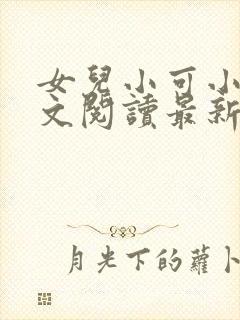 女兒小可小
文閱讀最新
月光下的蘿卜